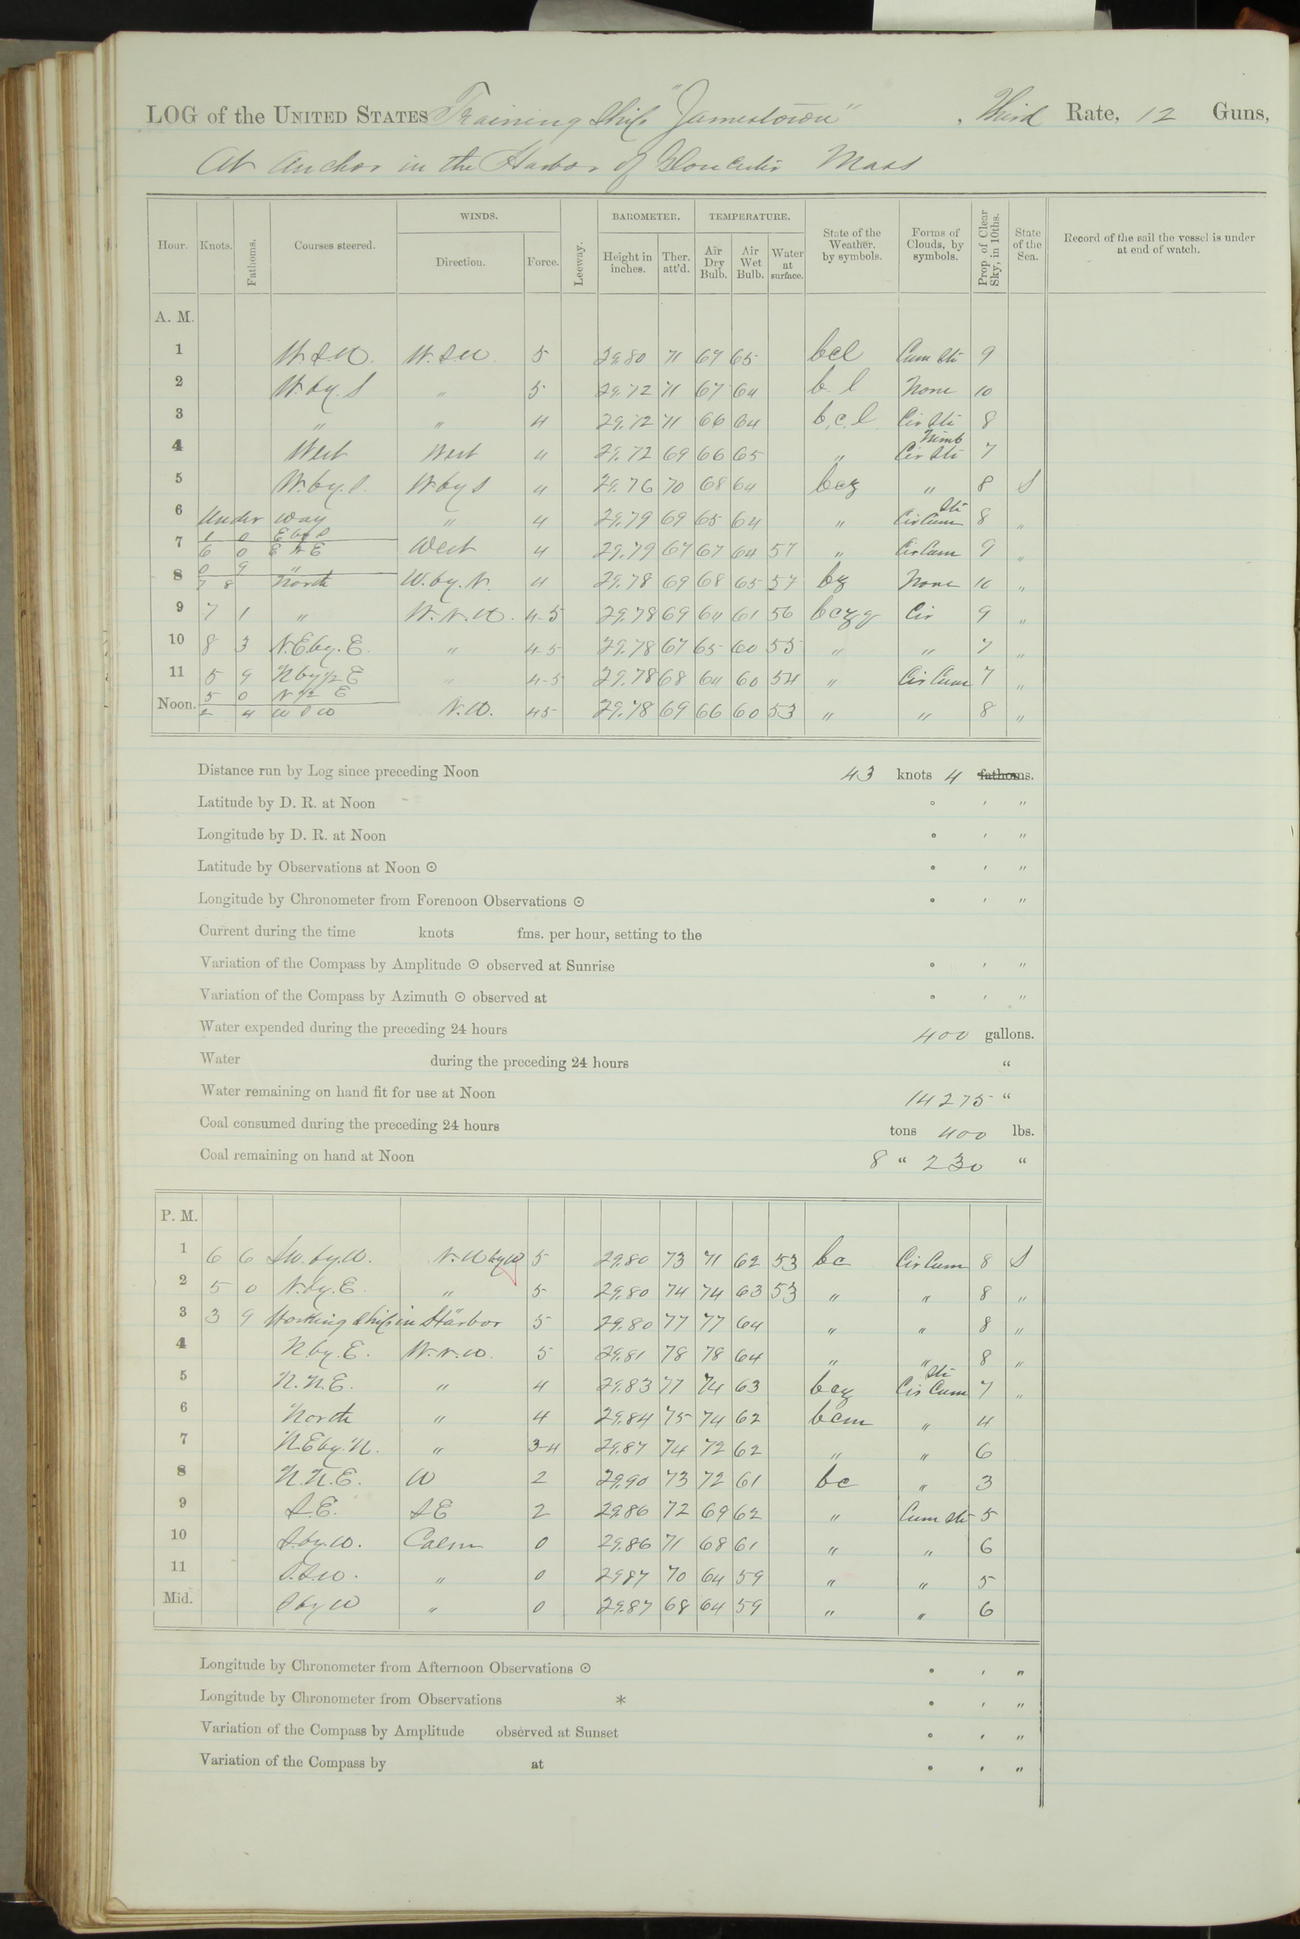 LOG of the UNITED STATES Training Ship "Jamestown", Third Rate, 12 Guns,
At anchor in the Harbor of Gloucester Mass
Hour. Knots. Fathoms. Courses steered. WINDS. Direction. Force. Leeway. BAROMETER. Height in inches. Ther. att'd. TEMPERATURE. Air Dry Bulb. Air Wet Bulb. Water at surface. State of the Weather, by symbols. Forms of Clouds, by symbols. Prop. of Clear Sky, in 10ths. State of the Sea. Record of the sail the vessel is under at end of watch.
A. M.
1 W.S.W. W.S.W. 5 29.80 71 67 65 bcl Cum Sti 9
2 W. by. S " 5 29.72 71 67 64 b. l None 10
3 " " 4 29.72 71 66 64 b.c.l Cir Sti 8
4 West West 4 29.72 69 66 65 " Nimb Cir Sti 7
5 W. by. S. W by S 4 29.76 70 68 64 bcz " 8 S
6 Under way " 4 29.79 69 65 64 " Sti Cir Cum 8 "
1 0 E by S
7 6 0 E N E West 4 29.79 67 67 64 57 " Cir Cum 9 "
0 9 "
8 7 8 North W. by. N. 4 29.78 69 68 65 57 bz None 10 "
9 7 1 " W.N.W. 4-5 29.78 69 64 61 56 bczg Cir 9 "
10 8 3 N.E by. E. " 4-5 29.78 67 65 60 55 " " 7 "
11 5 9 N by 1/2 E " 4-5 29.78 68 64 60 54 " Cir Cum 7 "
5 0 N 1/2 E
Noon. 2 4 W S W N.W. 4-5 29.78 69 66 60 53 " " 8 "
Distance run by Log since preceding Noon 43 knots 4 fathoms.
Latitude by D. R. at Noon ° ′ ″
Longitude by D. R. at Noon ° ′ ″
Latitude by Observations at Noon ☉ ° ′ ″
Longitude by Chronometer from Forenoon Observations ☉ ° ′ ″
Current during the time knots fms. per hour, setting to the
Variation of the Compass by Amplitude ☉ observed at Sunrise ° ′ ″
Variation of the Compass by Azimuth ☉ observed at ° ′ ″
Water expended during the preceding 24 hours 400 gallons.
Water during the preceding 24 hours "
Water remaining on hand fit for use at Noon 14275 "
Coal consumed during the preceding 24 hours tons 400 lbs.
Coal remaining on hand at Noon 8 " 230 "
P. M.
1 6 6 SW. by. W. N.W by W 5 29.80 73 71 62 53 bc Cir Cum 8 S
2 5 0 N. by. E. " 5 29.80 74 74 63 53 " " 8 "
3 3 9 Working Ship in Harbor 5 29.80 77 77 64 " " 8 "
4 N. by. E. W.N.W. 5 29.81 78 78 64 " " 8 "
5 N.N.E. " 4 29.83 77 74 63 bcz Sti Cir Cum 7 "
6 North " 4 29.84 75 74 62 bcm " 4
7 N E by. N. " 3-4 29.87 74 72 62 " " 6
8 N.N.E. W 2 29.90 73 72 61 bc " 3
9 S.E. S E 2 29.86 72 69 62 " Cum Sti 5
10 S. by. W. Calm 0 29.86 71 68 61 " " 6
11 S.S.W. " 0 29.87 70 64 59 " " 5
Mid. S by W " 0 29.87 68 64 59 " " 6
Longitude by Chronometer from Afternoon Observations ☉ ° ′ ″
Longitude by Chronometer from Observations * ° ′ ″
Variation of the Compass by Amplitude observed at Sunset ° ′ ″
Variation of the Compass by at ° ′ ″